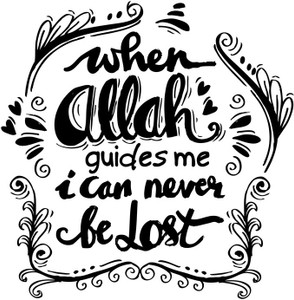 when
Allah
guides me
i can never
be Lost